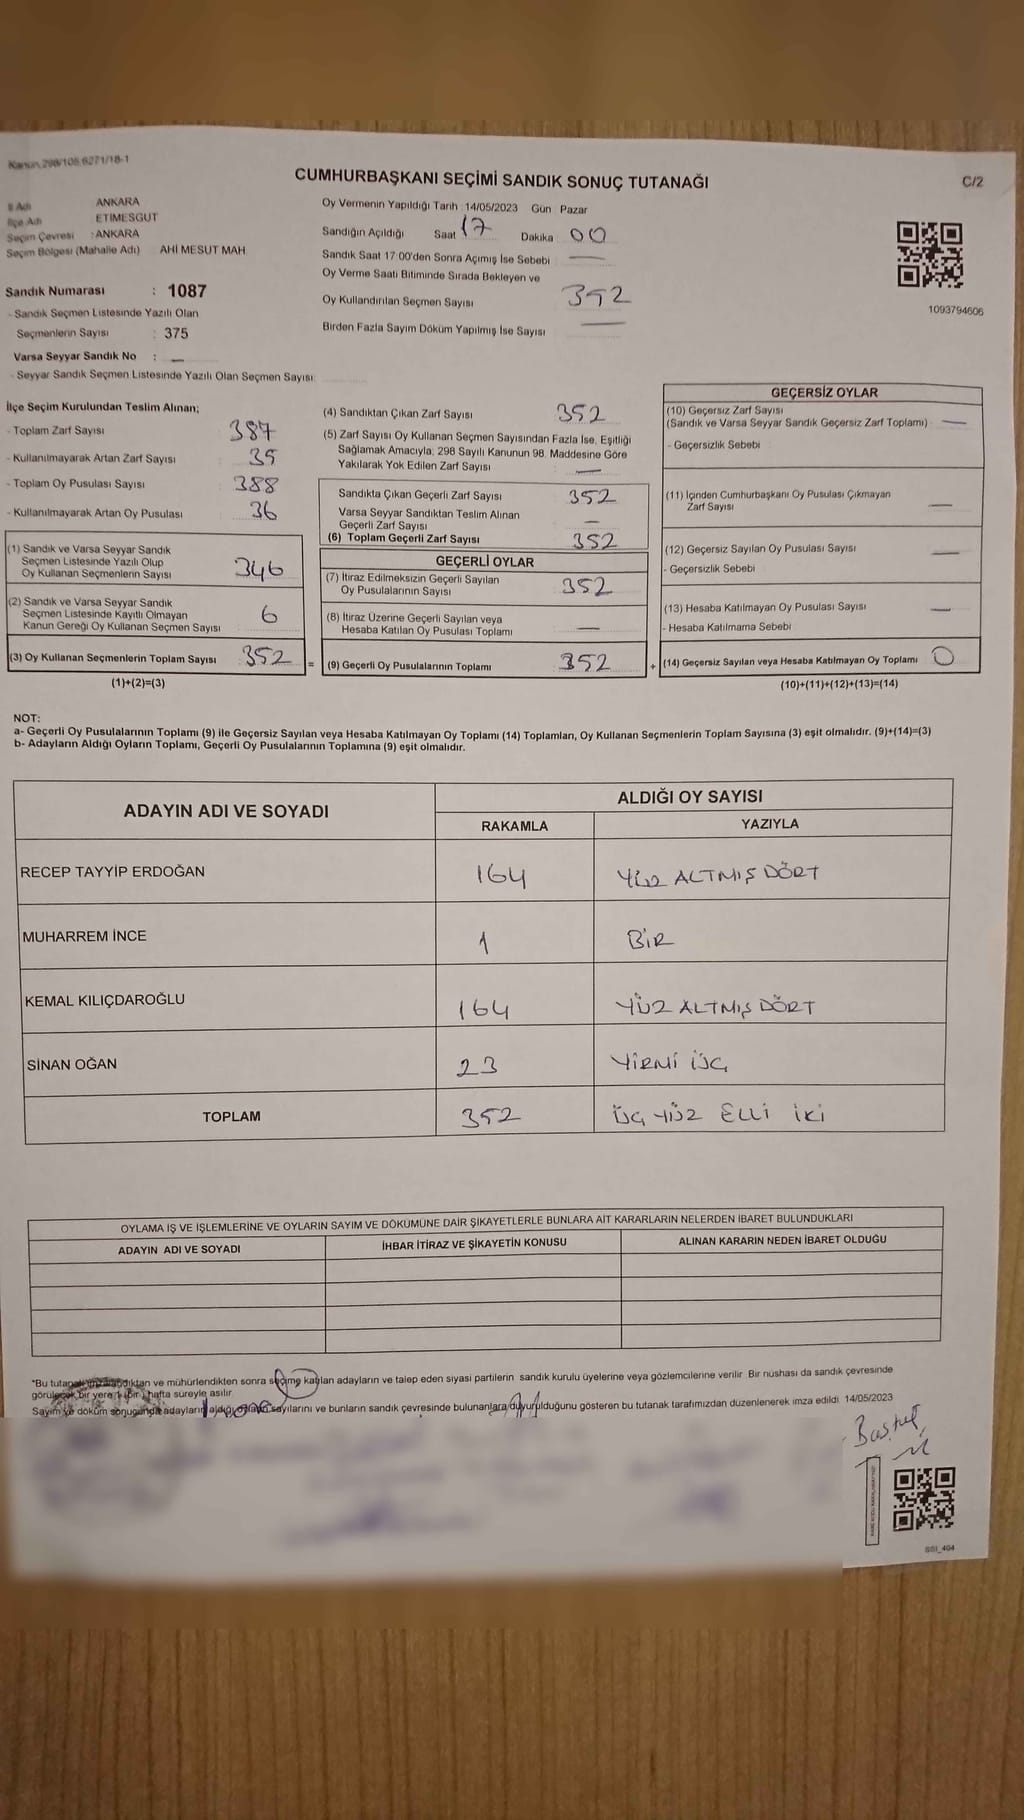 Kanun.298/108.6271/18-1
CUMHURBAŞKANI SEÇİMİ SANDIK SONUÇ TUTANAĞI
C/2
İl Adı ANKARA
İlçe Adı ETİMESGUT
Seçim Çevresi : ANKARA
Seçim Bölgesi (Mahalle Adı) AHİ MESUT MAH.
Sandık Numarası : 1087
- Sandık Seçmen Listesinde Yazılı Olan
Seçmenlerin Sayısı : 375
Varsa Seyyar Sandık No : —
- Seyyar Sandık Seçmen Listesinde Yazılı Olan Seçmen Sayısı:
Oy Vermenin Yapıldığı Tarih 14/05/2023 Gün Pazar
Sandığın Açıldığı Saat 17 Dakika 00
Sandık Saat 17:00'den Sonra Açımış İse Sebebi —
Oy Verme Saati Bitiminde Sırada Bekleyen ve
Oy Kullandırılan Seçmen Sayısı 352
Birden Fazla Sayım Döküm Yapılmış İse Sayısı —
1093794606
İlçe Seçim Kurulundan Teslim Alınan;
- Toplam Zarf Sayısı 387
- Kullanılmayarak Artan Zarf Sayısı 35
- Toplam Oy Pusulası Sayısı 388
- Kullanılmayarak Artan Oy Pusulası 36
(1) Sandık ve Varsa Seyyar Sandık
Seçmen Listesinde Yazılı Olup
Oy Kullanan Seçmenlerin Sayısı 346
(2) Sandık ve Varsa Seyyar Sandık
Seçmen Listesinde Kayıtlı Olmayan
Kanun Gereği Oy Kullanan Seçmen Sayısı 6
(3) Oy Kullanan Seçmenlerin Toplam Sayısı 352 =
(1)+(2)=(3)
(4) Sandıktan Çıkan Zarf Sayısı 352
(5) Zarf Sayısı Oy Kullanan Seçmen Sayısından Fazla İse, Eşitliği
Sağlamak Amacıyla; 298 Sayılı Kanunun 98. Maddesine Göre
Yakılarak Yok Edilen Zarf Sayısı —
Sandıkta Çıkan Geçerli Zarf Sayısı 352
Varsa Seyyar Sandıktan Teslim Alınan
Geçerli Zarf Sayısı —
(6) Toplam Geçerli Zarf Sayısı 352
GEÇERLİ OYLAR
(7) İtiraz Edilmeksizin Geçerli Sayılan
Oy Pusulalarının Sayısı 352
(8) İtiraz Üzerine Geçerli Sayılan veya
Hesaba Katılan Oy Pusulası Toplamı —
(9) Geçerli Oy Pusulalarının Toplamı 352 +
GEÇERSİZ OYLAR
(10) Geçersiz Zarf Sayısı
(Sandık ve Varsa Seyyar Sandık Geçersiz Zarf Toplamı) —
- Geçersizlik Sebebi
(11) İçinden Cumhurbaşkanı Oy Pusulası Çıkmayan
Zarf Sayısı —
(12) Geçersiz Sayılan Oy Pusulası Sayısı —
- Geçersizlik Sebebi
(13) Hesaba Katılmayan Oy Pusulası Sayısı —
- Hesaba Katılmama Sebebi
(14) Geçersiz Sayılan veya Hesaba Katılmayan Oy Toplamı 0
(10)+(11)+(12)+(13)=(14)
NOT:
a- Geçerli Oy Pusulalarının Toplamı (9) ile Geçersiz Sayılan veya Hesaba Katılmayan Oy Toplamı (14) Toplamları, Oy Kullanan Seçmenlerin Toplam Sayısına (3) eşit olmalıdır. (9)+(14)=(3)
b- Adayların Aldığı Oyların Toplamı, Geçerli Oy Pusulalarının Toplamına (9) eşit olmalıdır.
ADAYIN ADI VE SOYADI ALDIĞI OY SAYISI
RAKAMLA YAZIYLA
RECEP TAYYİP ERDOĞAN 164 YÜZ ALTMIŞ DÖRT
MUHARREM İNCE 1 BİR
KEMAL KILIÇDAROĞLU 164 YÜZ ALTMIŞ DÖRT
SİNAN OĞAN 23 YİRMİ ÜÇ
TOPLAM 352 ÜÇ YÜZ ELLİ İKİ
OYLAMA İŞ VE İŞLEMLERİNE VE OYLARIN SAYIM VE DÖKÜMÜNE DAİR ŞİKAYETLERLE BUNLARA AİT KARARLARIN NELERDEN İBARET BULUNDUKLARI
ADAYIN ADI VE SOYADI İHBAR İTİRAZ VE ŞİKAYETİN KONUSU ALINAN KARARIN NEDEN İBARET OLDUĞU
*Bu tutanak imzalandıktan ve mühürlendikten sonra seçime katılan adayların ve talep eden siyasi partilerin sandık kurulu üyelerine veya gözlemcilerine verilir. Bir nüshası da sandık çevresinde
görülecek bir yere 1 (bir) hafta süreyle asılır.
Sayım ve döküm sonucunda adayların aldığı oyların sayılarını ve bunların sandık çevresinde bulunanlara duyurulduğunu gösteren bu tutanak tarafımızdan düzenlenerek imza edildi. 14/05/2023
SSI_404